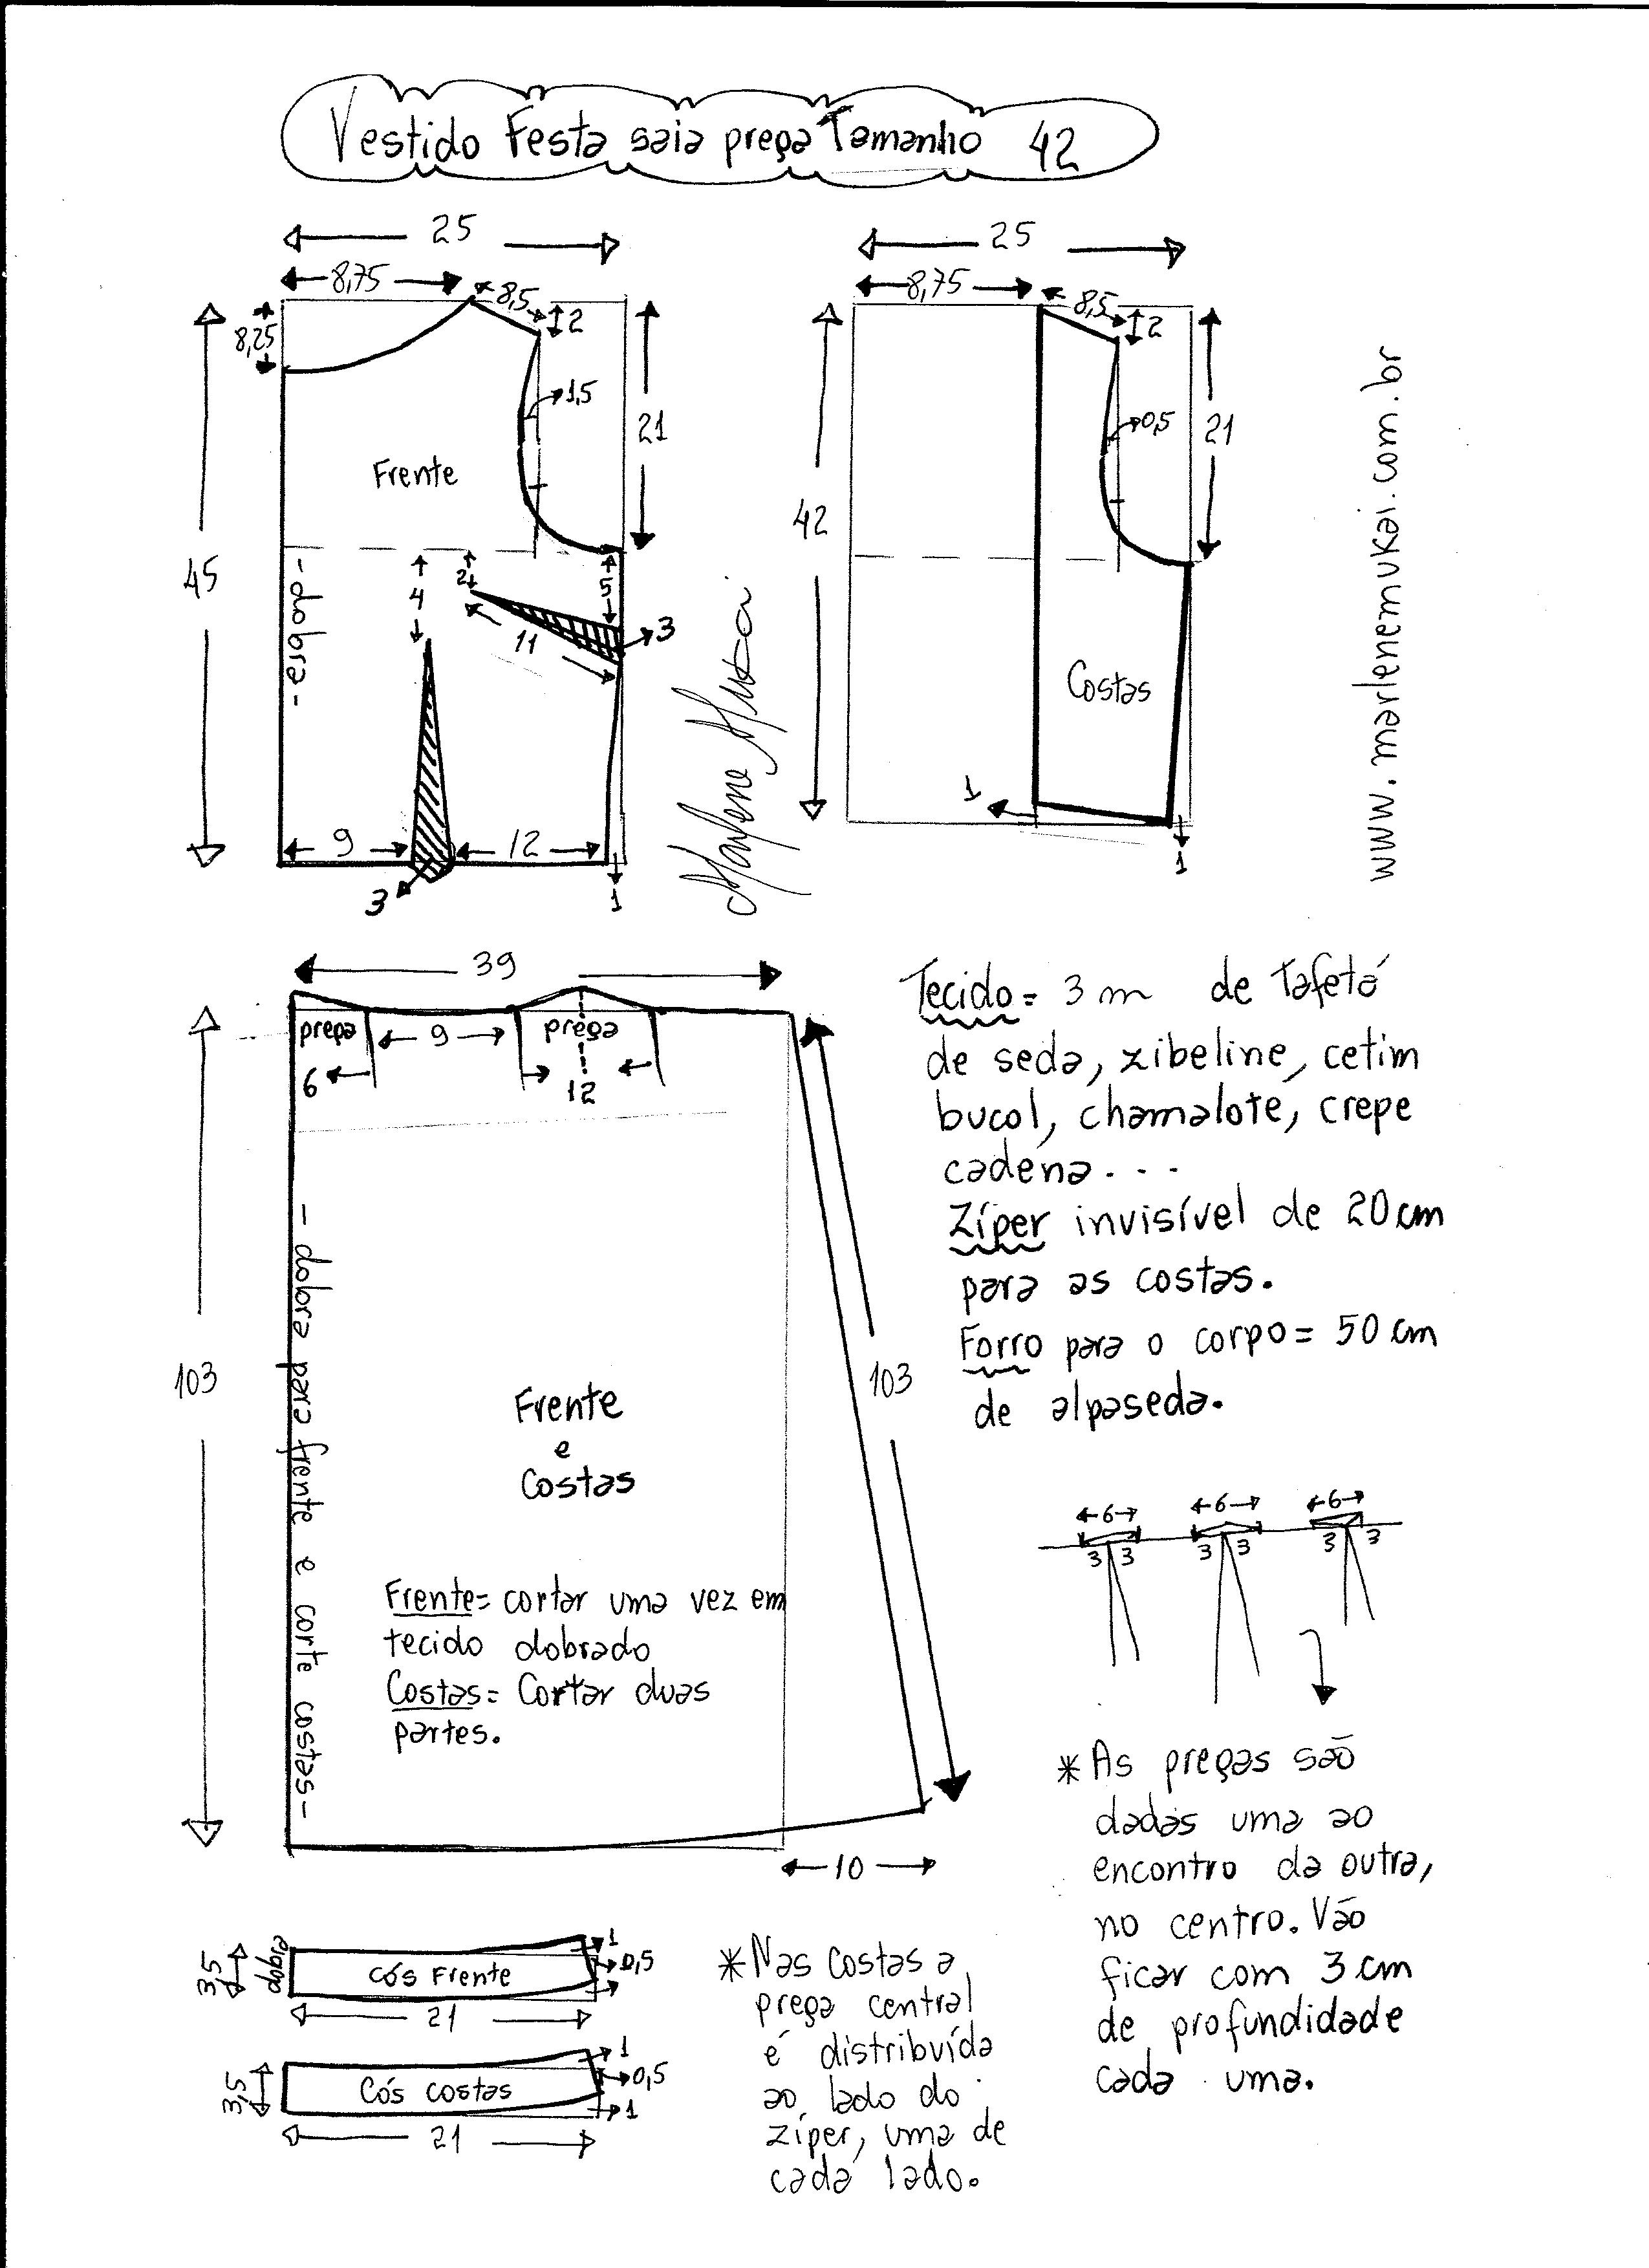 Vestido Festa saia prega Tamanho 42
25
8,75
8,5
2
8,25
1,5
21
Frente
45
- dobra -
4
2
5
11
3
9
12
3
1
25
8,75
8,5
2
0,5
21
42
Costas
1
1
Marlene Mukai
www.marlenemukai.com.br
39
prega
9
prega
6
12
103
103
- dobra para frente e corte costas -
Frente
e
Costas
Frente= cortar uma vez em
tecido dobrado
Costas= Cortar duas
partes.
10
Tecido= 3 m de Tafetá
de seda, zibeline, cetim
bucol, chamalote, crepe
cadena...
Zíper invisível de 20 cm
para as costas.
Forro para o corpo= 50 cm
de alpaseda.
6
6
6
3 3
3 3
3 3
* As pregas são
dadas uma ao
encontro da outra,
no centro. Vão
ficar com 3 cm
de profundidade
cada uma.
3,5
dobra
Cós Frente
1
0,5
21
3,5
Cós costas
1
0,5
1
21
* Nas costas a
prega central
é distribuída
ao lado do
zíper, uma de
cada lado.